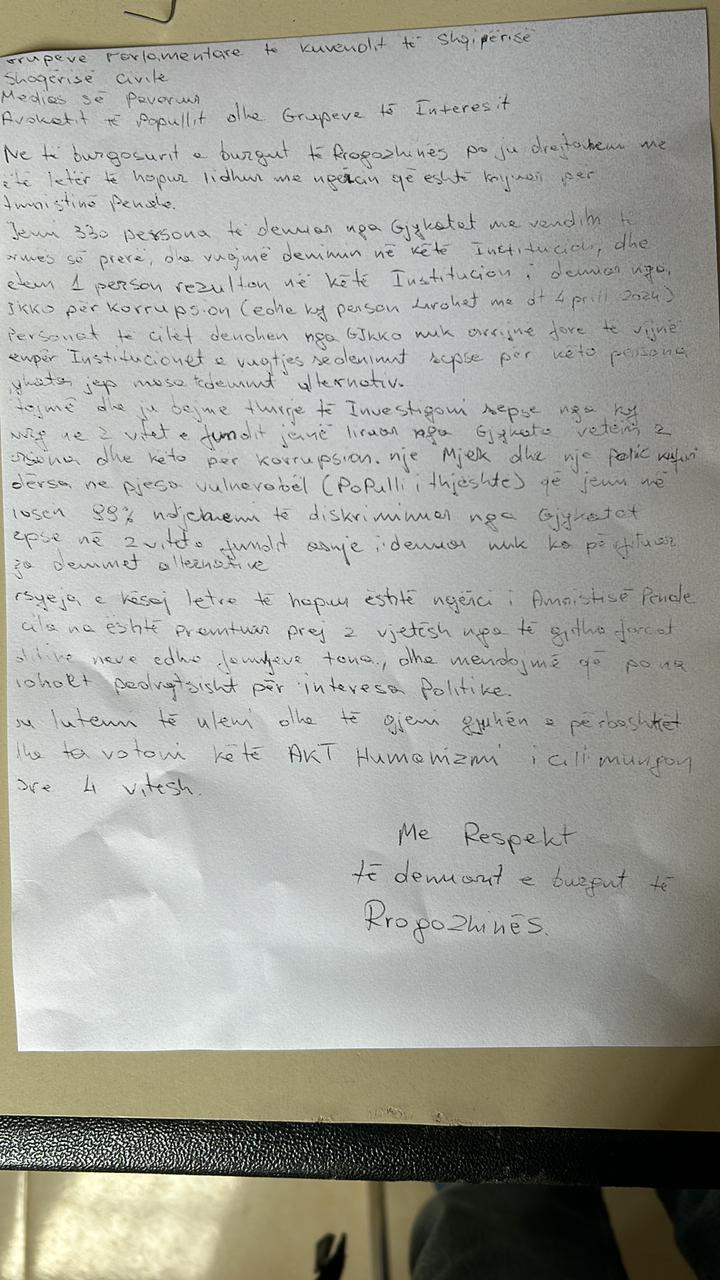 Grupeve Parlamentare të Kuvendit të Shqipërisë
Shoqërisë Civile
Medias së Pavarur
Avokatit të Popullit dhe Grupeve të Interesit
Ne të burgosurit e burgut të Rrogozhinës po ju drejtohemi me
ëtë letër të hapur lidhur me ngërçin që është krijuar për
Amnistinë Penale.
Jemi 330 persona të denuar nga Gjykatat me vendim të
ormës së prerë, dhe vuajmë denimin në këtë Institucion, dhe
etëm 1 person rezulton në këtë Institucion i denuar nga
JKKO për Korrupsion (edhe ky person lirohet me dt 4 prill 2024)
Personat të cilët denohen nga GJKKO nuk arrijnë fare të vijnë
nëpër Institucionet e vuajtjes se denimit sepse për këto persona
gjykata jep masa denimi alternativ.
ftojmë dhe ju bëjmë thirrje të Investigoni sepse nga ky
burg ne 2 vitet e fundit janë liruar nga Gjykata vetëm 2
ersona dhe këto për korrupsion. një Mjek dhe një polic
ndërsa ne pjesa vulnerabël (Populli i thjështë) që jemi në
99% ndjehemi të diskriminuar nga Gjykatat
sepse në 2 vitet e fundit asnjë i denuar nuk ka përfituar
nga denimet alternative
rsyeja e kësaj letre të hapur është ngërçi i Amnistisë Penale
cila na është premtuar prej 2 vjetësh nga të gjitha forcat
olitike neve edhe familjeve tona, dhe mendojmë që po na
mohohet padrejtësisht për interesa Politike.
Ju lutemi të uleni dhe të gjeni gjuhën e përbashkët
dhe ta votoni këtë AKT Humanizmi i cili mungon
prej 4 vitesh.
Me Respekt
të denuarit e burgut të
Rrogozhinës.